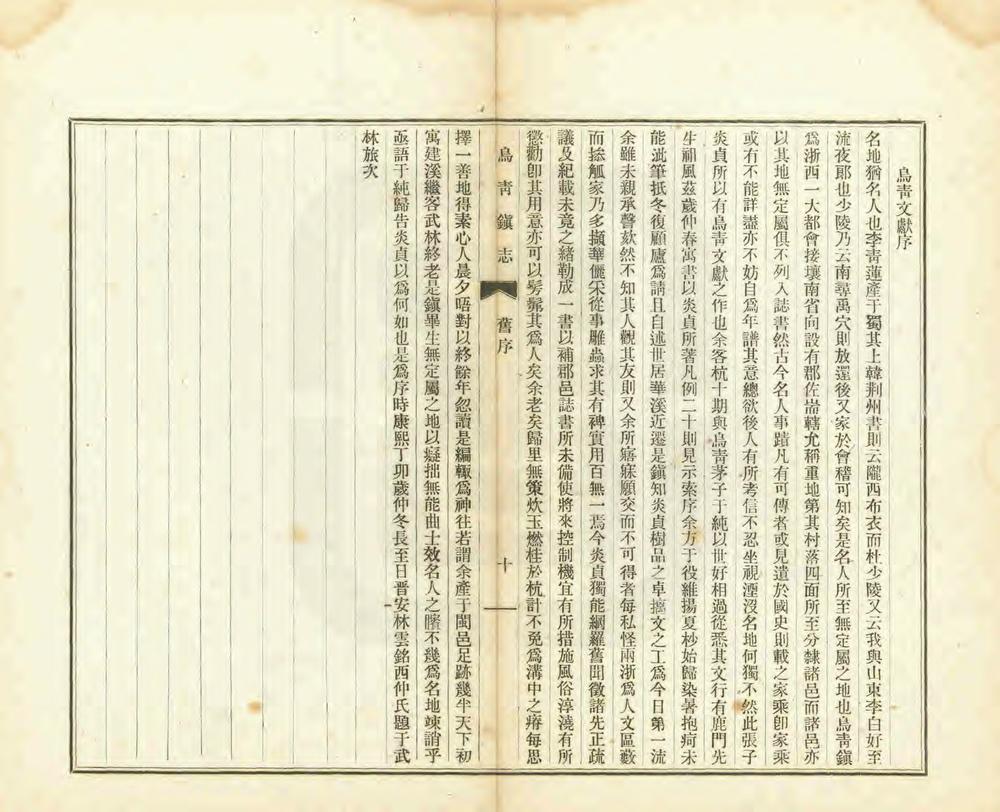 烏靑文獻序
名地猶名人也李靑蓮產于蜀其上韓荆州書則云隴西布衣而杜少陵又云我與山東李白好至
流夜郞也少陵乃云南尋禹穴則放還後又家於會稽可知矣是名人所至無定屬之地也烏靑鎭
爲浙西一大都會接壤南省向設有郡佐耑轄尤稱重地第其村落四面所至分隸諸邑而諸邑亦
以其地無定屬俱不列入誌書然古今名人事蹟凡有可傳者或見遺於國史則載之家乘卽家乘
或有不能詳盡亦不妨自爲年譜其意總欲後人有所考信不忍坐視湮沒名地何獨不然此張子
炎貞所以有烏靑文獻之作也余客杭十期與烏靑茅子于純以世好相過從悉其文行有鹿門先
生祖風茲歲仲春寓書以炎貞所著凡例二十則見示索序余方于役維揚夏杪始歸染暑抱疴未
能泚筆抵冬復顧廬爲請且自述世居華溪近遷是鎭知炎貞樹品之卓摛文之工爲今日第一流
余雖未親承聲欬然不知其人觀其友則又余所寤寐願交而不可得者每私怪兩浙爲人文區藪
而操觚家乃多擷華儷采從事雕蟲求其有裨實用百無一焉今炎貞獨能網羅舊聞徵諸先正疏
議及紀載未竟之緖勒成一書以補郡邑誌書所未備使將來控制機宜有所措施風俗淳澆有所
懲勸卽其用意亦可以髣髴其爲人矣余老矣歸里無策炊玉燃桂於杭計不免爲溝中之瘠每思
烏靑鎭志 舊序 十
擇一善地得素心人晨夕晤對以終餘年忽讀是編輒爲神往若謂余產于閩邑足跡幾半天下初
寓建溪繼客武林終老是鎭畢生無定屬之地以癡拙無能曲士效名人之嚬不幾爲名地竦誚乎
亟語于純歸告炎貞以爲何如也是爲序時康熙丁卯歲仲冬長至日晋安林雲銘西仲氏題于武
林旅次